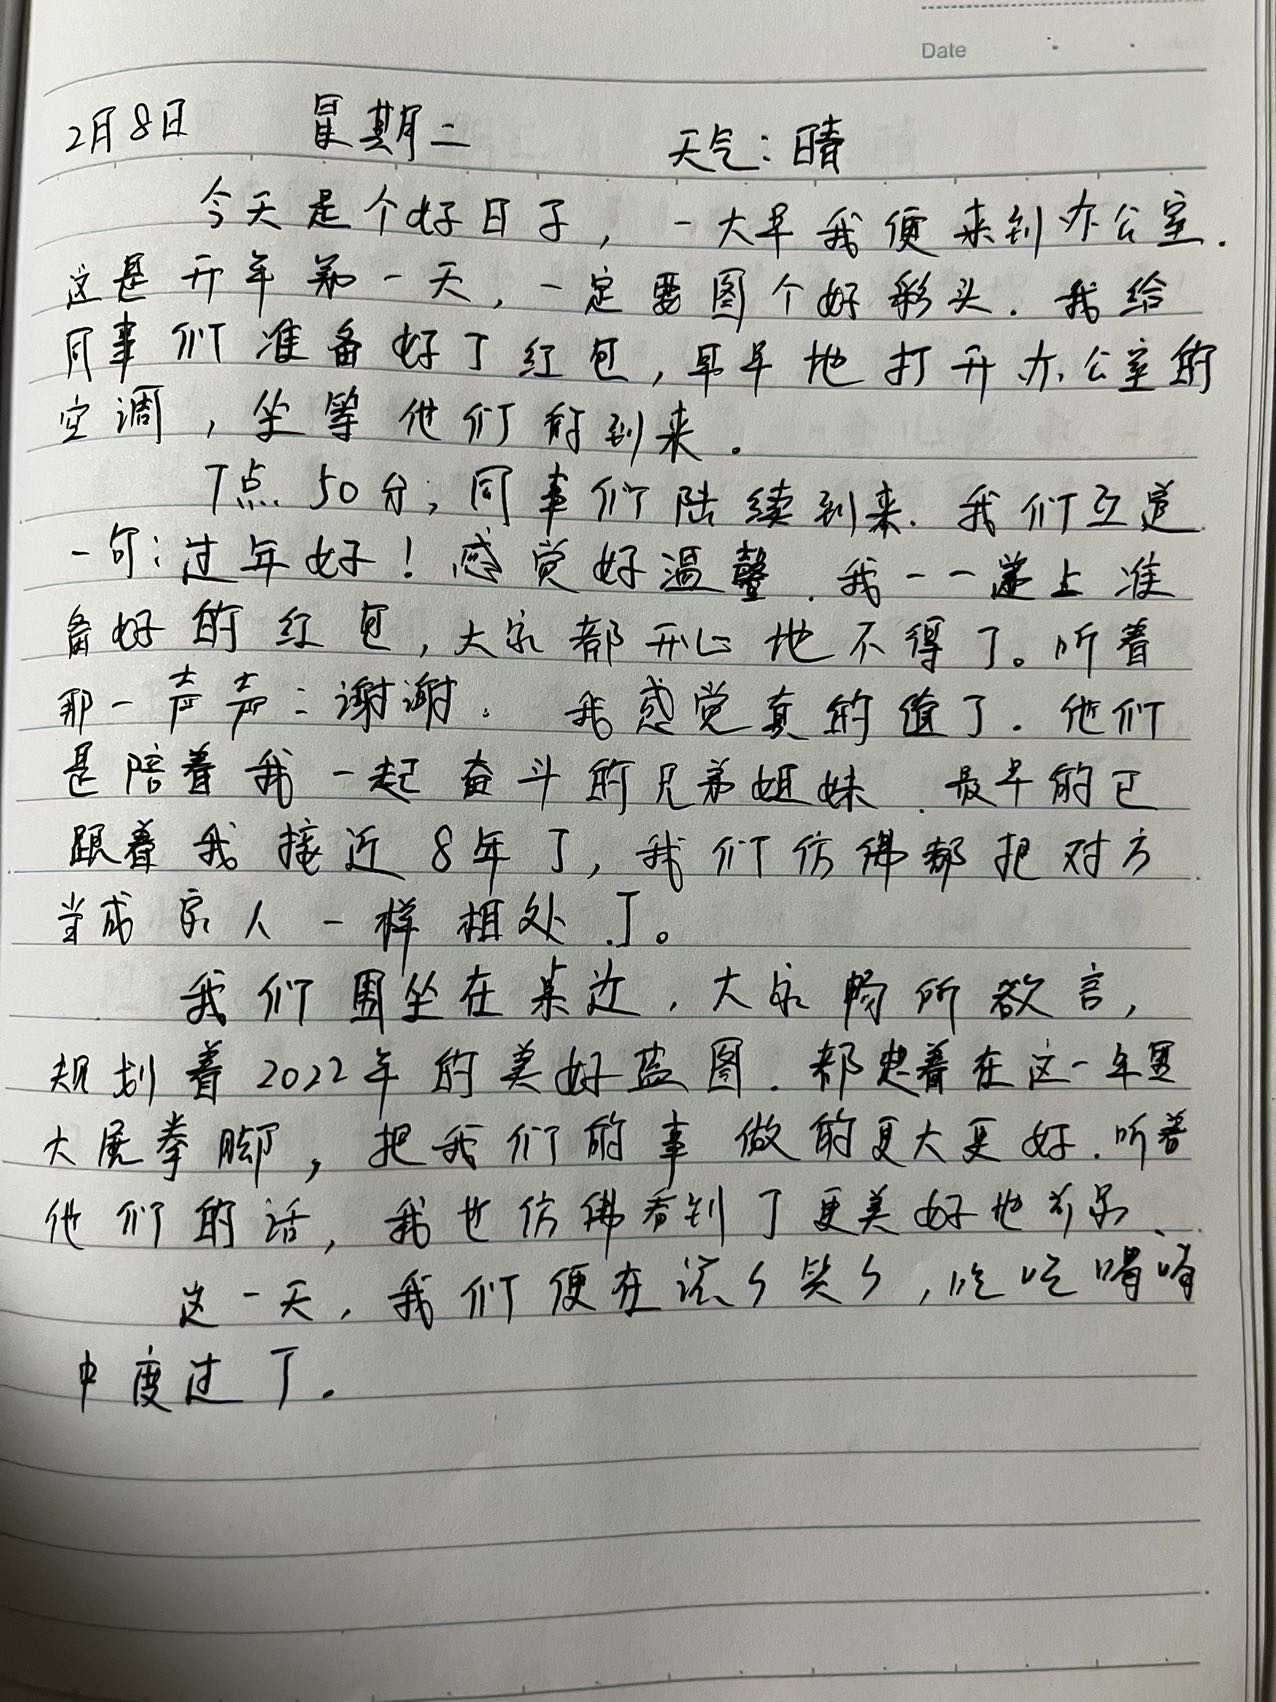 Date
2月8日 星期二 天气：晴
今天是个好日子，一大早我便来到办公室.
这是开年第一天，一定要图个好彩头.我给
同事们准备好了红包，早早地打开办公室的
空调，坐等他们的到来.
7点50分，同事们陆续到来.我们互道
一句：过年好！感觉好温馨.我一一递上准
备好的红包，大家都开心地不得了。听着
那一声声：谢谢.我感觉真的值了.他们
是陪着我一起奋斗的兄弟姐妹.最早的已
跟着我接近8年了，我们仿佛都把对方
当成家人一样相处了。
我们围坐在桌边，大家畅所欲言，
规划着2022年的美好蓝图.都想着在这一年里
大展拳脚，把我们的事做的更大更好.听着
他们的话，我也仿佛看到了更美好地前景.
这一天，我们便在说说笑笑，吃吃喝喝
中度过了.